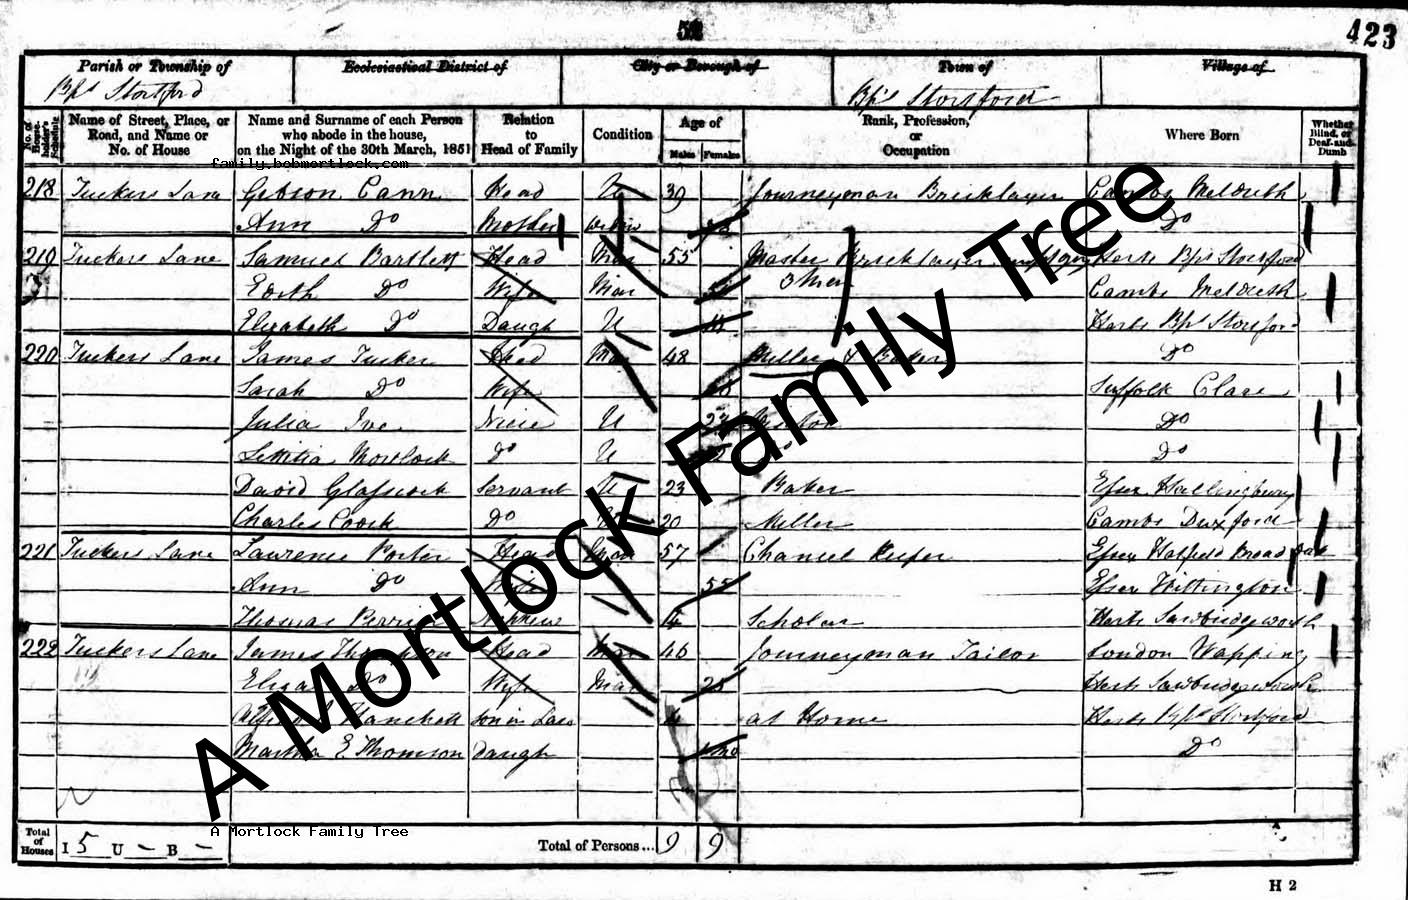 423
Parish or Township of Ecclesiastical District of City or Borough of Town of Village of
Bps Stortford Bps Stortford
No. of House-holder's Schedule Name of Street, Place, or Road, and Name or No. of House Name and Surname of each Person who abode in the house, on the Night of the 30th March, 1851 Relation to Head of Family Condition Age of Males Females Rank, Profession, or Occupation Where Born Whether Blind, or Deaf-and-Dumb
family.bobmortlock.com
218 Tuckers Lane Gibson Cann Head U 39 Journeyman Bricklayer Cambs Meldreth
Ann Do Mother Do
219 Tuckers Lane Samuel Bartlett Head Mar 55 Master Bricklayer Herts Bps Stortford
Edith Do Wife Mar 3 Men Cambs Meldreth
Elizabeth Do Daugh U Herts Bps Stortford
220 Tuckers Lane James Tucker Head Mar 48 Miller & Baker Do
Sarah Do Wife Suffolk Clare
Julia Ive Niece U Do
Letitia Mortlock Do U Do
David Glasscock Servant U 23 Baker Essex Hallingbury
Charles Coock Do U 20 Miller Cambs Duxford
221 Tuckers Lane Lawrence Porter Head Mar 57 Essex Hatfield Broad Oak
Ann Do Wife 55 Essex
Thomas Nephew Scholar Herts Sawbridgeworth
222 Tuckers Lane James Head Mar 46 Journeyman Tailor London Wapping
Eliza Do Wife Mar 25 Herts Sawbridgeworth
Hanchett Son in Law 4 at Home Herts Bps Stortford
Martha E Thomson Daugh Do
A Mortlock Family Tree
A Mortlock Family Tree
Total of Houses I 5 U – B – Total of Persons... 9 9
H 2